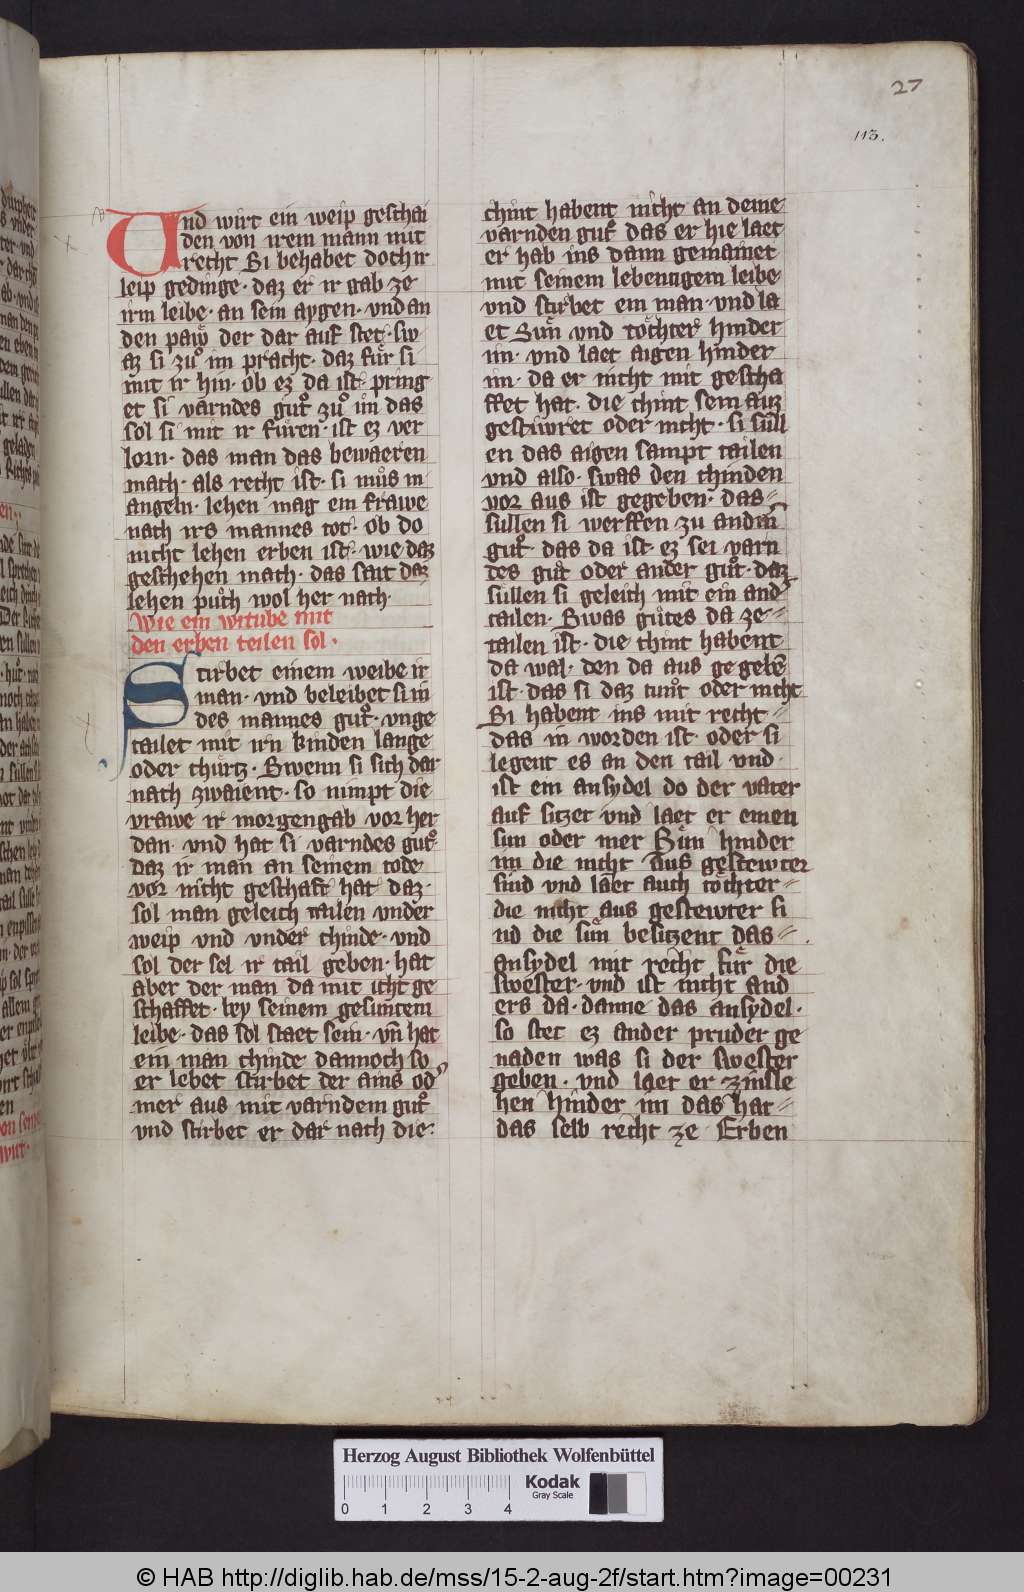 27
113.
Und wirt ein weip geschai
den von irem mann mit
recht Si behabet doch ir
leip gedinge · daz er ir gab ze
irm leibe · an sein aygen · vnd an
den paw der dar auf stet · sw
az si zuͦ im pracht · daz fuͤr si
mit ir hin · ob ez da ist · pring
et si varndes guͦt zuͦ im das
sol si mit ir fuͤren · ist ez ver
lorn · das man das bewaeren
mach · als recht ist · si muͦs in
angeln · lehen mag ein frawe
nach irs mannes tot · ob do
nicht lehen erben ist · wie daz
geschehen mach · das sait daz
lehen puͦch wol her nach ·
Wie ein witube mit
den erben teilen sol ·
Stirbet einem weibe ir
man · vnd beleibet si in
des mannes guͦt · vnge
tailet mit irn kinden lange
oder churtz · Swenn si sich dar
nach zwaient · so nimpt die
vrawe ir morgengab vor her
dan · vnd hat si varndes guͦt ·
daz ir man an seinem tode
vor nicht geschaft hat daz ·
sol man geleich tailen vnder
weip vnd vnder chinde · vnd
sol der sel ir tail geben · hat
aber der man da mit icht ge
schaffet · bey seinem gesuntem
leibe · das sol staet sein · vn̄ hat
ein man chinde dannoch so
er lebet stirbet der ains od̾
mer aus mit varndem guͦt
vnd stirbet er dar nach die
chint habent nicht an deme
varnden guͦt das er hie laet
er hab ins dann gemainet
mit seinem lebentigem leibe ·
vnd stirbet ein man · vnd la
et Suͤn vnd toͤchter hinder
im · vnd laet aigen hinder
im · da er nicht mit gescha
ffet hat · die chint sein auz
gestiwret oder nicht · si sull
en das aigen sampt tailen
vnd also · swas den chinden
vor aus ist gegeben · das
sullen si werffen zu andm̄
guͦt · das da ist · ez sei varn
des guͦt oder ander guͦt · daz
sullen si geleich mit ein and̾
tailen · Swas guͦtes da ze
tailen ist · die chint habent
da wal · den da aus gegebē
ist · das si daz tuͦt oder nicht
Si habent ins mit recht
das in worden ist · oder si
legent es an den tail vnd ·
ist ein ansydel do der vater
auf sitzet vnd laet er einen
sun oder mer Suͤn hinder
im die nicht aus gestewter
sind vnd laet auch toͤchter
die nicht aus gestewter si
nd die suͤn besitzent das
ansydel mit recht fuͤr die
swester · vnd ist nicht and
ers da · danne das ansydel ·
so stet ez ander pruder ge
naden was si der swester
geben · vnd laet er zinsle
hen hinder im das hat
das selb recht ze Erben
Herzog August Bibliothek Wolfenbüttel
0 1 2 3 4
Kodak
Gray Scale
© HAB http://diglib.hab.de/mss/15-2-aug-2f/start.htm?image=00231